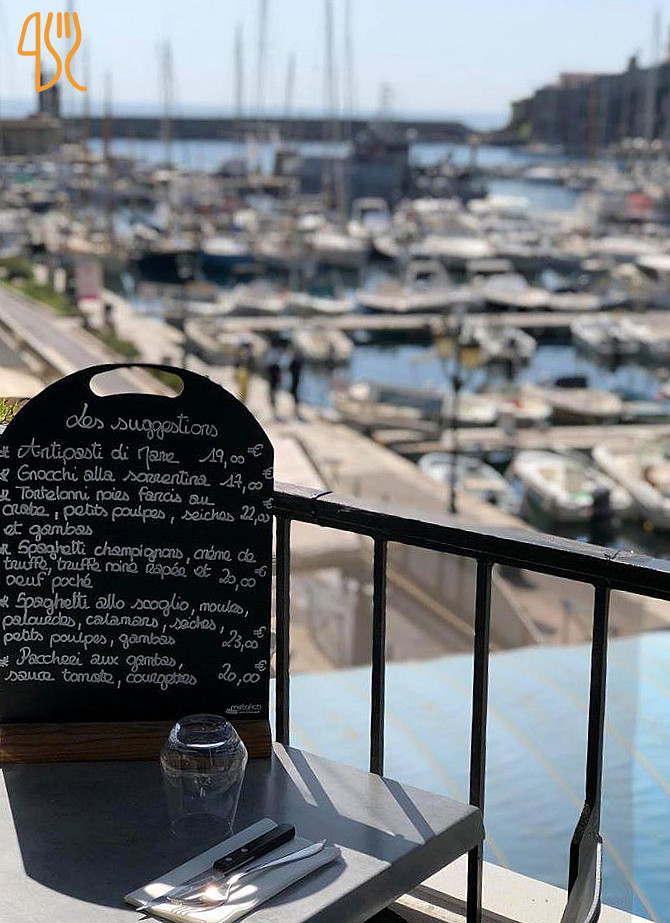 Les suggestions
* Antipasti di Mare 19,00€
* Gnocchi alla sorrentina 17,00€
* Tortelonni noies farcis au
crabe, petits poulpes, seiches 22,00
et gambas
* Spaghetti champignons, crème de
truffe, truffe noire rapée et 20,00€
oeuf poché
* Spaghetti allo scoglio, moules,
palourdes, calamars, seiches,
petits poulpes, gambas 23,00€
* Paccheri aux gambas,
sauce tomate, courgettes 20,00€